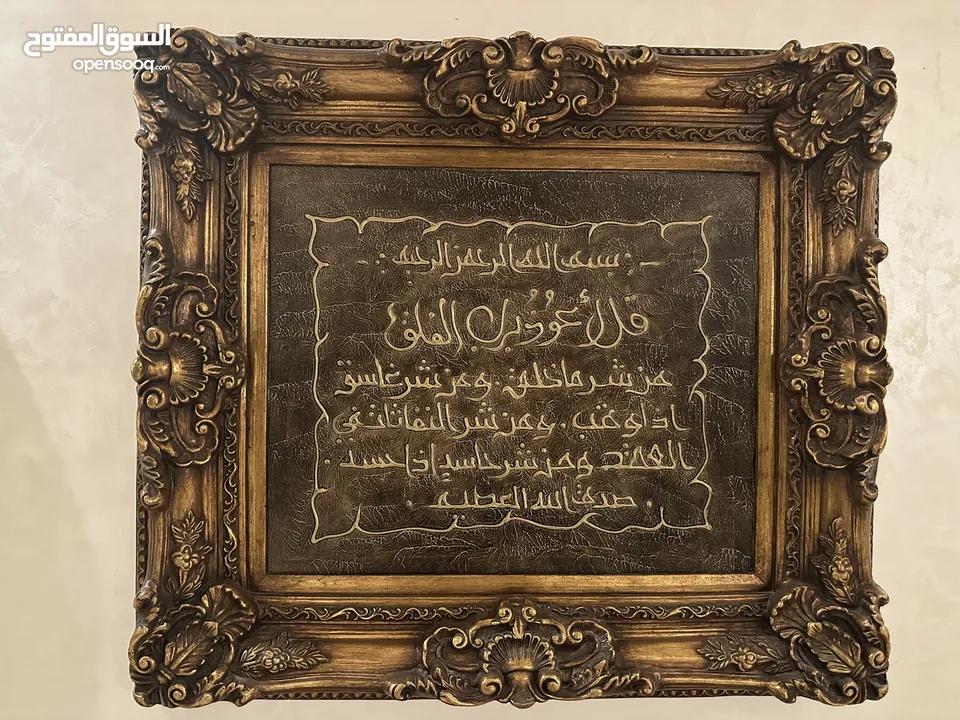 السوق المفتوح
opensooq.com
بسم الله الرحمن الرحيم
قل أعُوذُ برب الفلق
من شر ما خلق . ومن شر غاسق
اذا وقب . ومن شر النفاثات في
العقد ومن شر حاسدٍ إذا حسد .
. صدق الله العظيم .